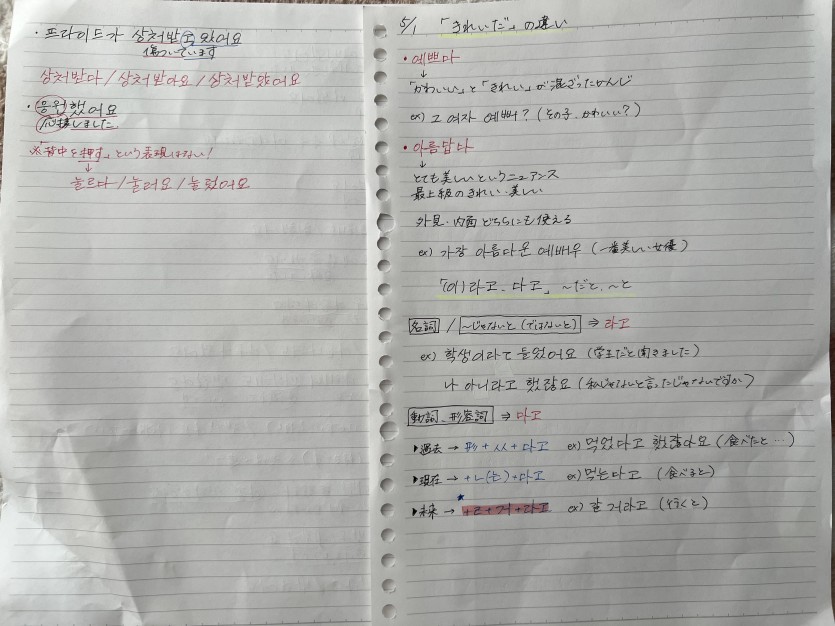 ・프라이드가 상처받고 왔어요
傷ついています
상처받다/상처받아요/상처받았어요
・응원했어요
応援しました
※「背中を押す」という表現はない!
↓
눌르다/눌러요/눌렀어요
5/1 「きれいだ」の違い
・예쁘다
↓
「かわいい」と「きれい」が混ざったかんじ
ex) 그 여자 예뻐? (その子、かわいい?)
・아름답다
↓
とても美しいというニュアンス
最上級のきれい・美しい
外見・内面どちらにも使える
ex) 가장 아름다운 예배우 (一番美しい女優)
「(이)라고、다고」 ~だと、~と
名詞 / ~じゃないと(ではないと) ⇒ 라고
ex) 학생이라고 들었어요 (学生だと聞きました)
나 아니라고 했잖요 (私じゃないと言ったじゃないですか)
動詞、形容詞 ⇒ 다고
▶過去 → 形+ㅆ+다고 ex) 먹었다고 했잖아요 (食べたと…)
▶現在 → +ㄴ(는)+다고 ex) 먹는다고 (食べると)
▶未来 → +ㄹ+거+라고 ex) 갈 거라고 (行くと)